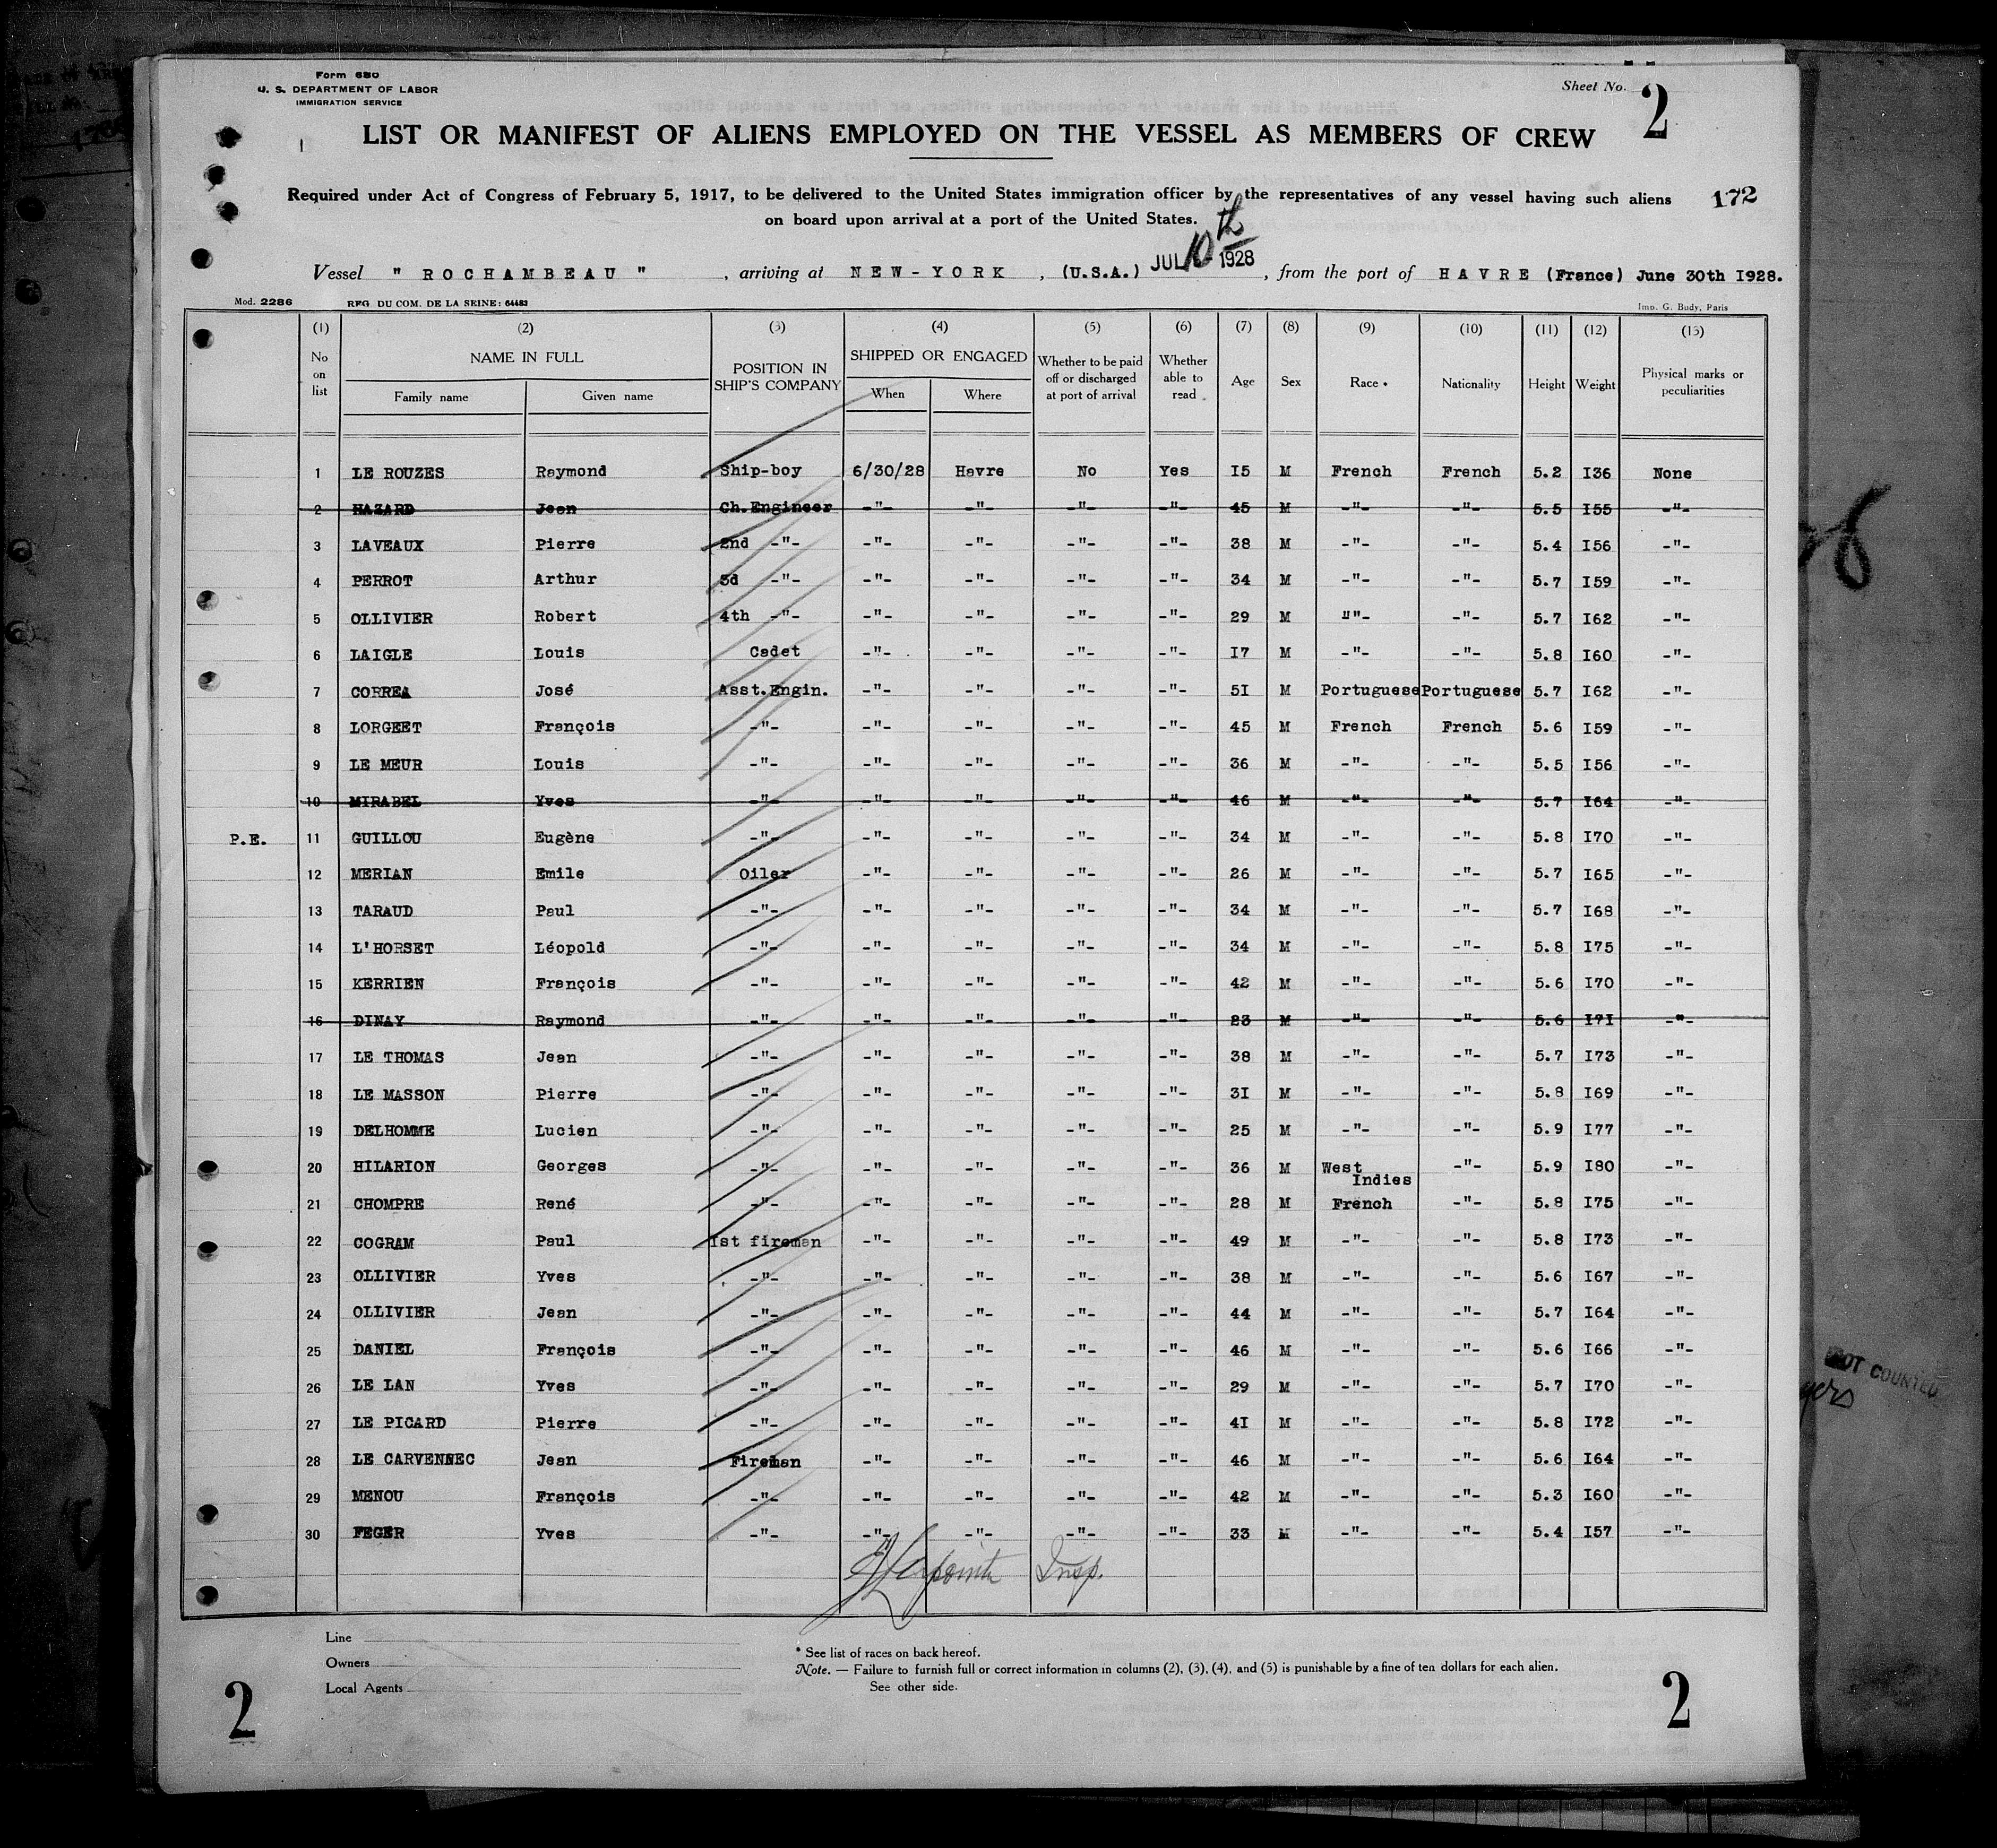 Form 680
U. S. DEPARTMENT OF LABOR
IMMIGRATION SERVICE
Sheet No. 2
LIST OR MANIFEST OF ALIENS EMPLOYED ON THE VESSEL AS MEMBERS OF CREW
Required under Act of Congress of February 5, 1917, to be delivered to the United States immigration officer by the representatives of any vessel having such aliens
on board upon arrival at a port of the United States.
172
Vessel " ROCHAMBEAU " , arriving at NEW-YORK , (U.S.A.) JUL 10th 1928 , from the port of HAVRE (France) June 30th 1928.
Mod. 2286 REG. DU COM. DE LA SEINE: 64483 Imp. G. Budy, Paris
(1) (2) (3) (4) (5) (6) (7) (8) (9) (10) (11) (12) (13)
No on list NAME IN FULL Family name Given name POSITION IN SHIP'S COMPANY SHIPPED OR ENGAGED When Where Whether to be paid off or discharged at port of arrival Whether able to read Age Sex Race * Nationality Height Weight Physical marks or peculiarities
1 LE ROUZES Raymond Ship-boy 6/30/28 Havre No Yes I5 M French French 5.2 I36 None
2 HAZARD Jean Ch.Engineer -"- -"- -"- -"- 45 M -"- -"- 5.5 I55 -"-
3 LAVEAUX Pierre 2nd -"- -"- -"- -"- -"- 38 M -"- -"- 5.4 I56 -"-
4 PERROT Arthur 3d -"- -"- -"- -"- -"- 34 M -"- -"- 5.7 I59 -"-
5 OLLIVIER Robert 4th -"- -"- -"- -"- -"- 29 M ""- -"- 5.7 I62 -"-
6 LAIGLE Louis Cadet -"- -"- -"- -"- I7 M -"- -"- 5.8 I60 -"-
7 CORREA José Asst.Engin. -"- -"- -"- -"- 5I M Portuguese Portuguese 5.7 I62 -"-
8 LORGEET François -"- -"- -"- -"- -"- 45 M French French 5.6 I59 -"-
9 LE MEUR Louis -"- -"- -"- -"- -"- 36 M -"- -"- 5.5 I56 -"-
10 MIRABEL Yves -"- -"- -"- -"- -"- 46 M -"- -"- 5.7 I64 -"-
P.E. 11 GUILLOU Eugène -"- -"- -"- -"- -"- 34 M -"- -"- 5.8 I70 -"-
12 MERIAN Emile Oiler -"- -"- -"- -"- 26 M -"- -"- 5.7 I65 -"-
13 TARAUD Paul -"- -"- -"- -"- -"- 34 M -"- -"- 5.7 I68 -"-
14 L'HORSET Léopold -"- -"- -"- -"- -"- 34 M -"- -"- 5.8 I75 -"-
15 KERRIEN François -"- -"- -"- -"- -"- 42 M -"- -"- 5.6 I70 -"-
16 DINAY Raymond -"- -"- -"- -"- -"- 23 M -"- -"- 5.6 I7I -"-
17 LE THOMAS Jean -"- -"- -"- -"- -"- 38 M -"- -"- 5.7 I73 -"-
18 LE MASSON Pierre -"- -"- -"- -"- -"- 3I M -"- -"- 5.8 I69 -"-
19 DELHOMME Lucien -"- -"- -"- -"- -"- 25 M -"- -"- 5.9 I77 -"-
20 HILARION Georges -"- -"- -"- -"- -"- 36 M West Indies -"- 5.9 I80 -"-
21 CHOMPRE René -"- -"- -"- -"- -"- 28 M French -"- 5.8 I75 -"-
22 COGRAM Paul Ist fireman -"- -"- -"- -"- 49 M -"- -"- 5.8 I73 -"-
23 OLLIVIER Yves -"- -"- -"- -"- -"- 38 M -"- -"- 5.6 I67 -"-
24 OLLIVIER Jean -"- -"- -"- -"- -"- 44 M -"- -"- 5.7 I64 -"-
25 DANIEL François -"- -"- -"- -"- -"- 46 M -"- -"- 5.6 I66 -"-
26 LE LAN Yves -"- -"- -"- -"- -"- 29 M -"- -"- 5.7 I70 -"-
27 LE PICARD Pierre -"- -"- -"- -"- -"- 4I M -"- -"- 5.8 I72 -"-
28 LE CARVENNEC Jean Fireman -"- -"- -"- -"- 46 M -"- -"- 5.6 I64 -"-
29 MENOU François -"- -"- -"- -"- -"- 42 M -"- -"- 5.3 I60 -"-
30 FEGER Yves -"- -"- -"- -"- -"- 33 M -"- -"- 5.4 I57 -"-
Insp.
NOT COUNTED
Line
Owners
Local Agents
* See list of races on back hereof.
Note. — Failure to furnish full or correct information in columns (2), (3), (4), and (5) is punishable by a fine of ten dollars for each alien.
See other side.
2 2